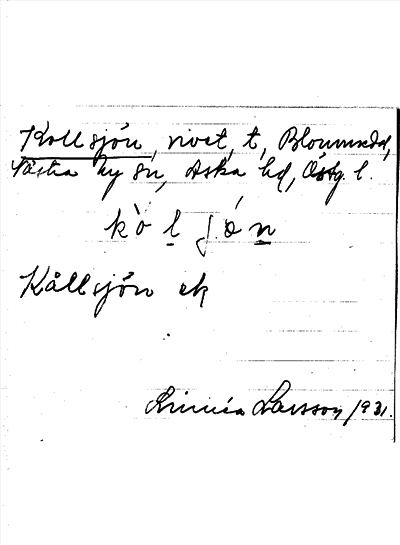 Kollsjön, rivet, t, Blommedal,
Västra Ny sn, Aska hd, Östg. l.
kò l ʃ ó n
Kållsjön ek
Linnéa Larsson 1931.